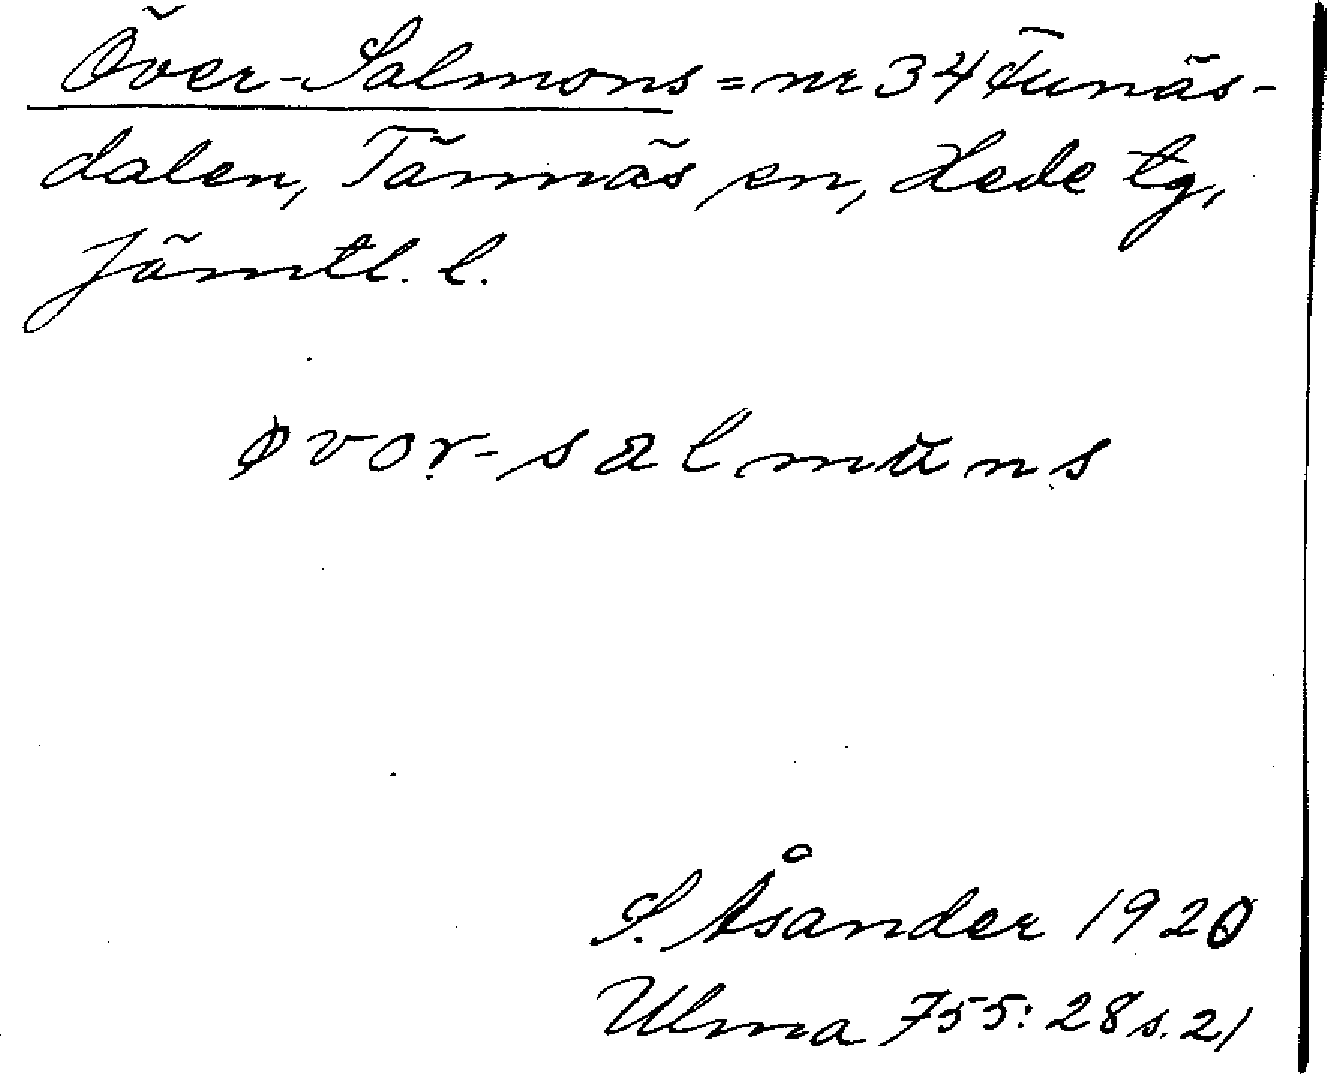 Över-Salmons = nr 34 Funäs-
dalen, Tännäs sn, Hede tg,
Jämtl. l.
øvor-salmuns
S. Åsander 1920
Ulma 755:28 s. 21